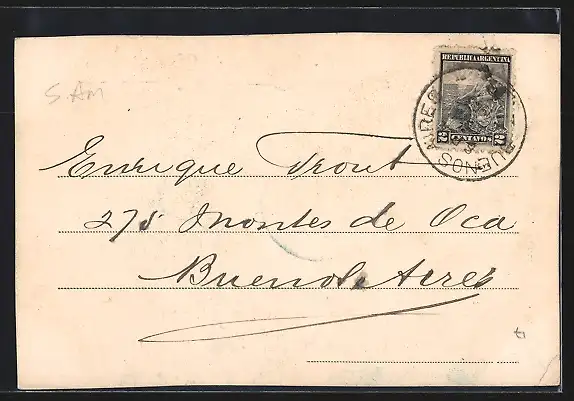 S. Am
REPUBLICA ARGENTINA
2 CENTAVOS 2
BUENOS AIRES
Enrique Trout
275 Montes de Oca
Buenos Aires